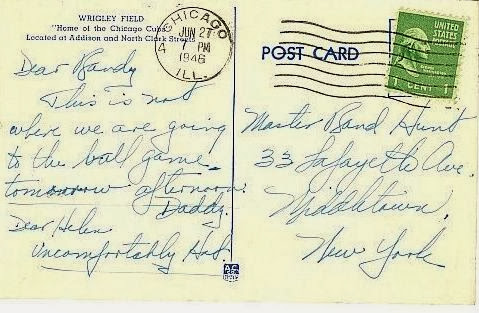 WRIGLEY FIELD
"Home of the Chicago Cubs"
Located at Addison and North Clark Streets
CHICAGO
JUN 27
7 PM
1946
ILL.
POST CARD
UNITED
STATES
1 CENT 1
Dear Randy
This is not
where we are going
to the ball game
tomorrow afternoon.
Daddy.
Dear Helen
Uncomfortably Hot
Master Rand Hunt
33 Lafayette Ave.
Middletown,
New York